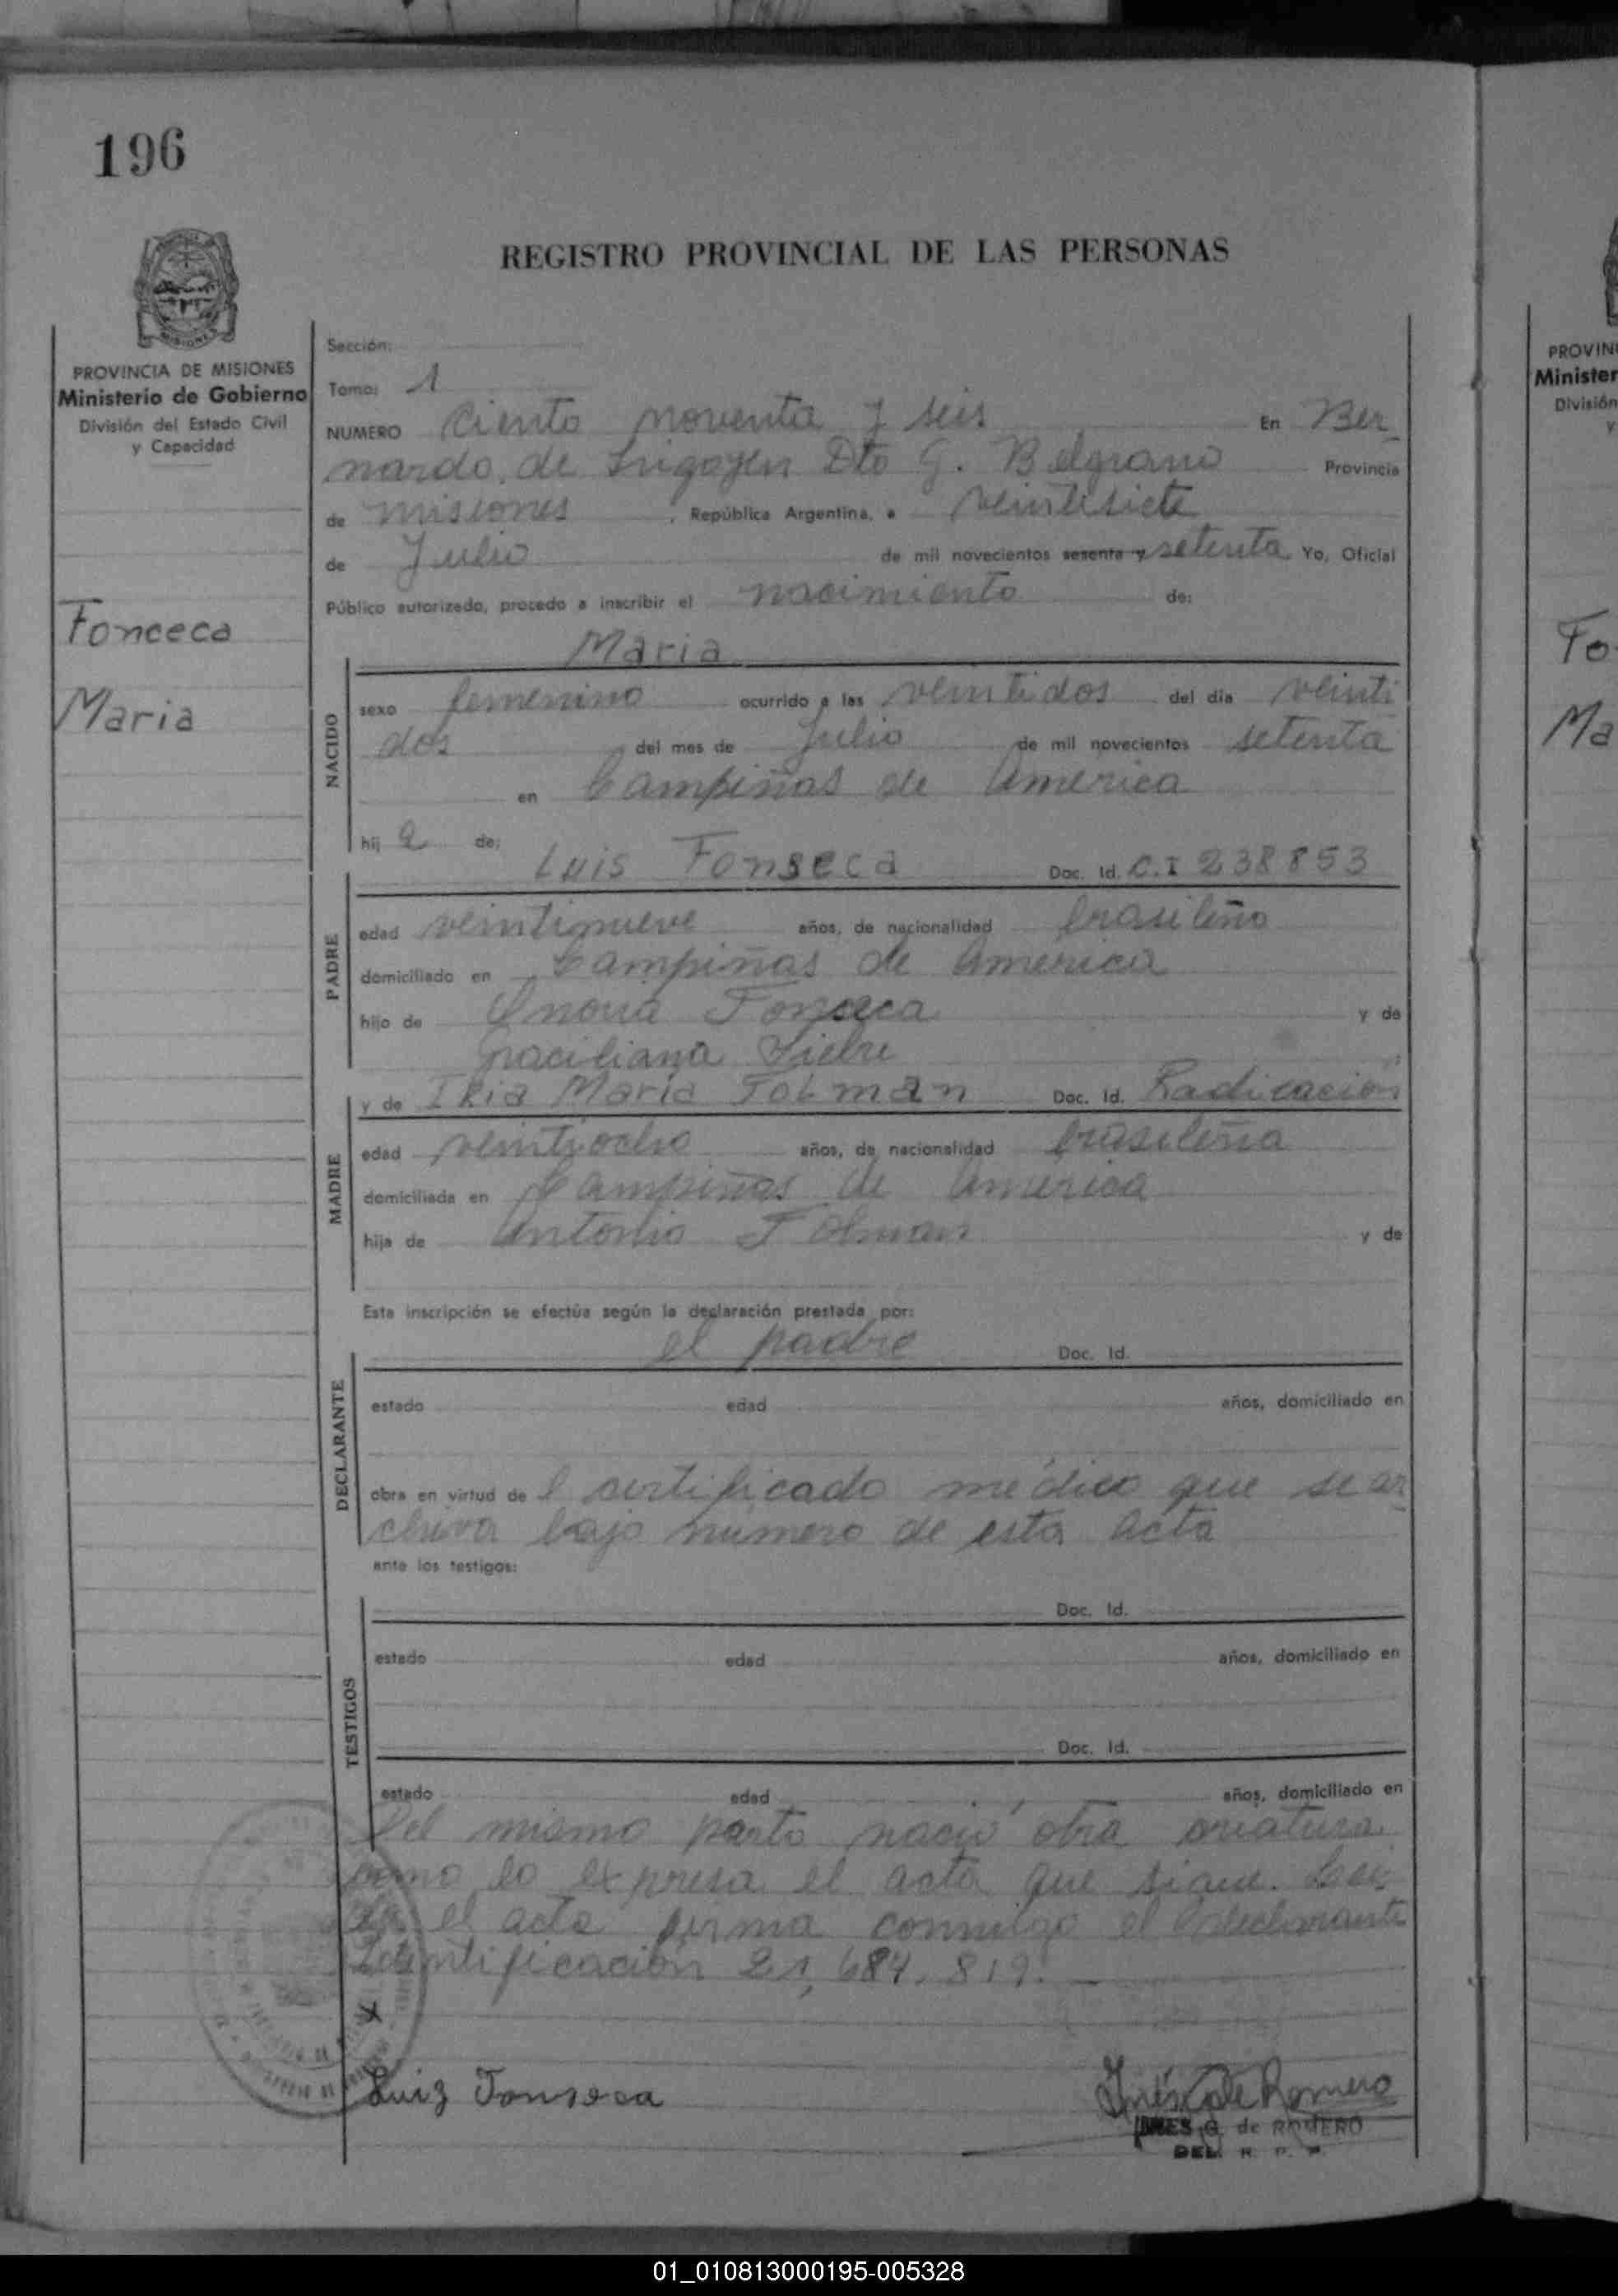 196
REGISTRO PROVINCIAL DE LAS PERSONAS
PROVINCIA DE MISIONES
Ministerio de Gobierno
División del Estado Civil
y Capacidad
Fonceca
Maria
Sección:
Tomo: 1
NUMERO Ciento noventa y seis En Ber
nardo de Irigoyen Dto G. Belgrano Provincia
de misiones, República Argentina, a veintisiete
de Julio de mil novecientos sesenta y setenta Yo, Oficial
Público autorizado, procedo a inscribir el nacimiento de:
Maria
NACIDO
sexo femenino ocurrido a las veintidos del día veinti
dos del mes de Julio de mil novecientos setenta
en Campiñas de America
hij a de:
Luis Fonseca Doc. Id. C.I 238853
PADRE
edad veintinueve años, de nacionalidad brasileño
domiciliado en Campiñas de America
hijo de Fonseca y de
Graciliana
y de Iria Maria Folman Doc. Id. Radicación
MADRE
edad veintiocho años, de nacionalidad brasileña
domiciliada en Campiñas de America
hija de Antonio Folman y de
Esta inscripción se efectúa según la declaración prestada por:
el padre Doc. Id.
DECLARANTE
estado edad años, domiciliado en
obra en virtud de l certificado médico que se ar
chiva bajo número de esta acta
ante los testigos:
Doc. Id.
TESTIGOS
estado edad años, domiciliado en
Doc. Id.
estado edad años, domiciliado en
Del mismo parto nació otra criatura
como lo expresa el acta que sigue. Lei
da el acta firma conmigo el declarante
Identificación 21,684.819.
x
Luiz Fonseca
Inés G de Romero
INES G. de ROMERO
DEL. R. P. P.
PROVIN
Minister
División
y
Fo
Ma
01_010813000195-005328